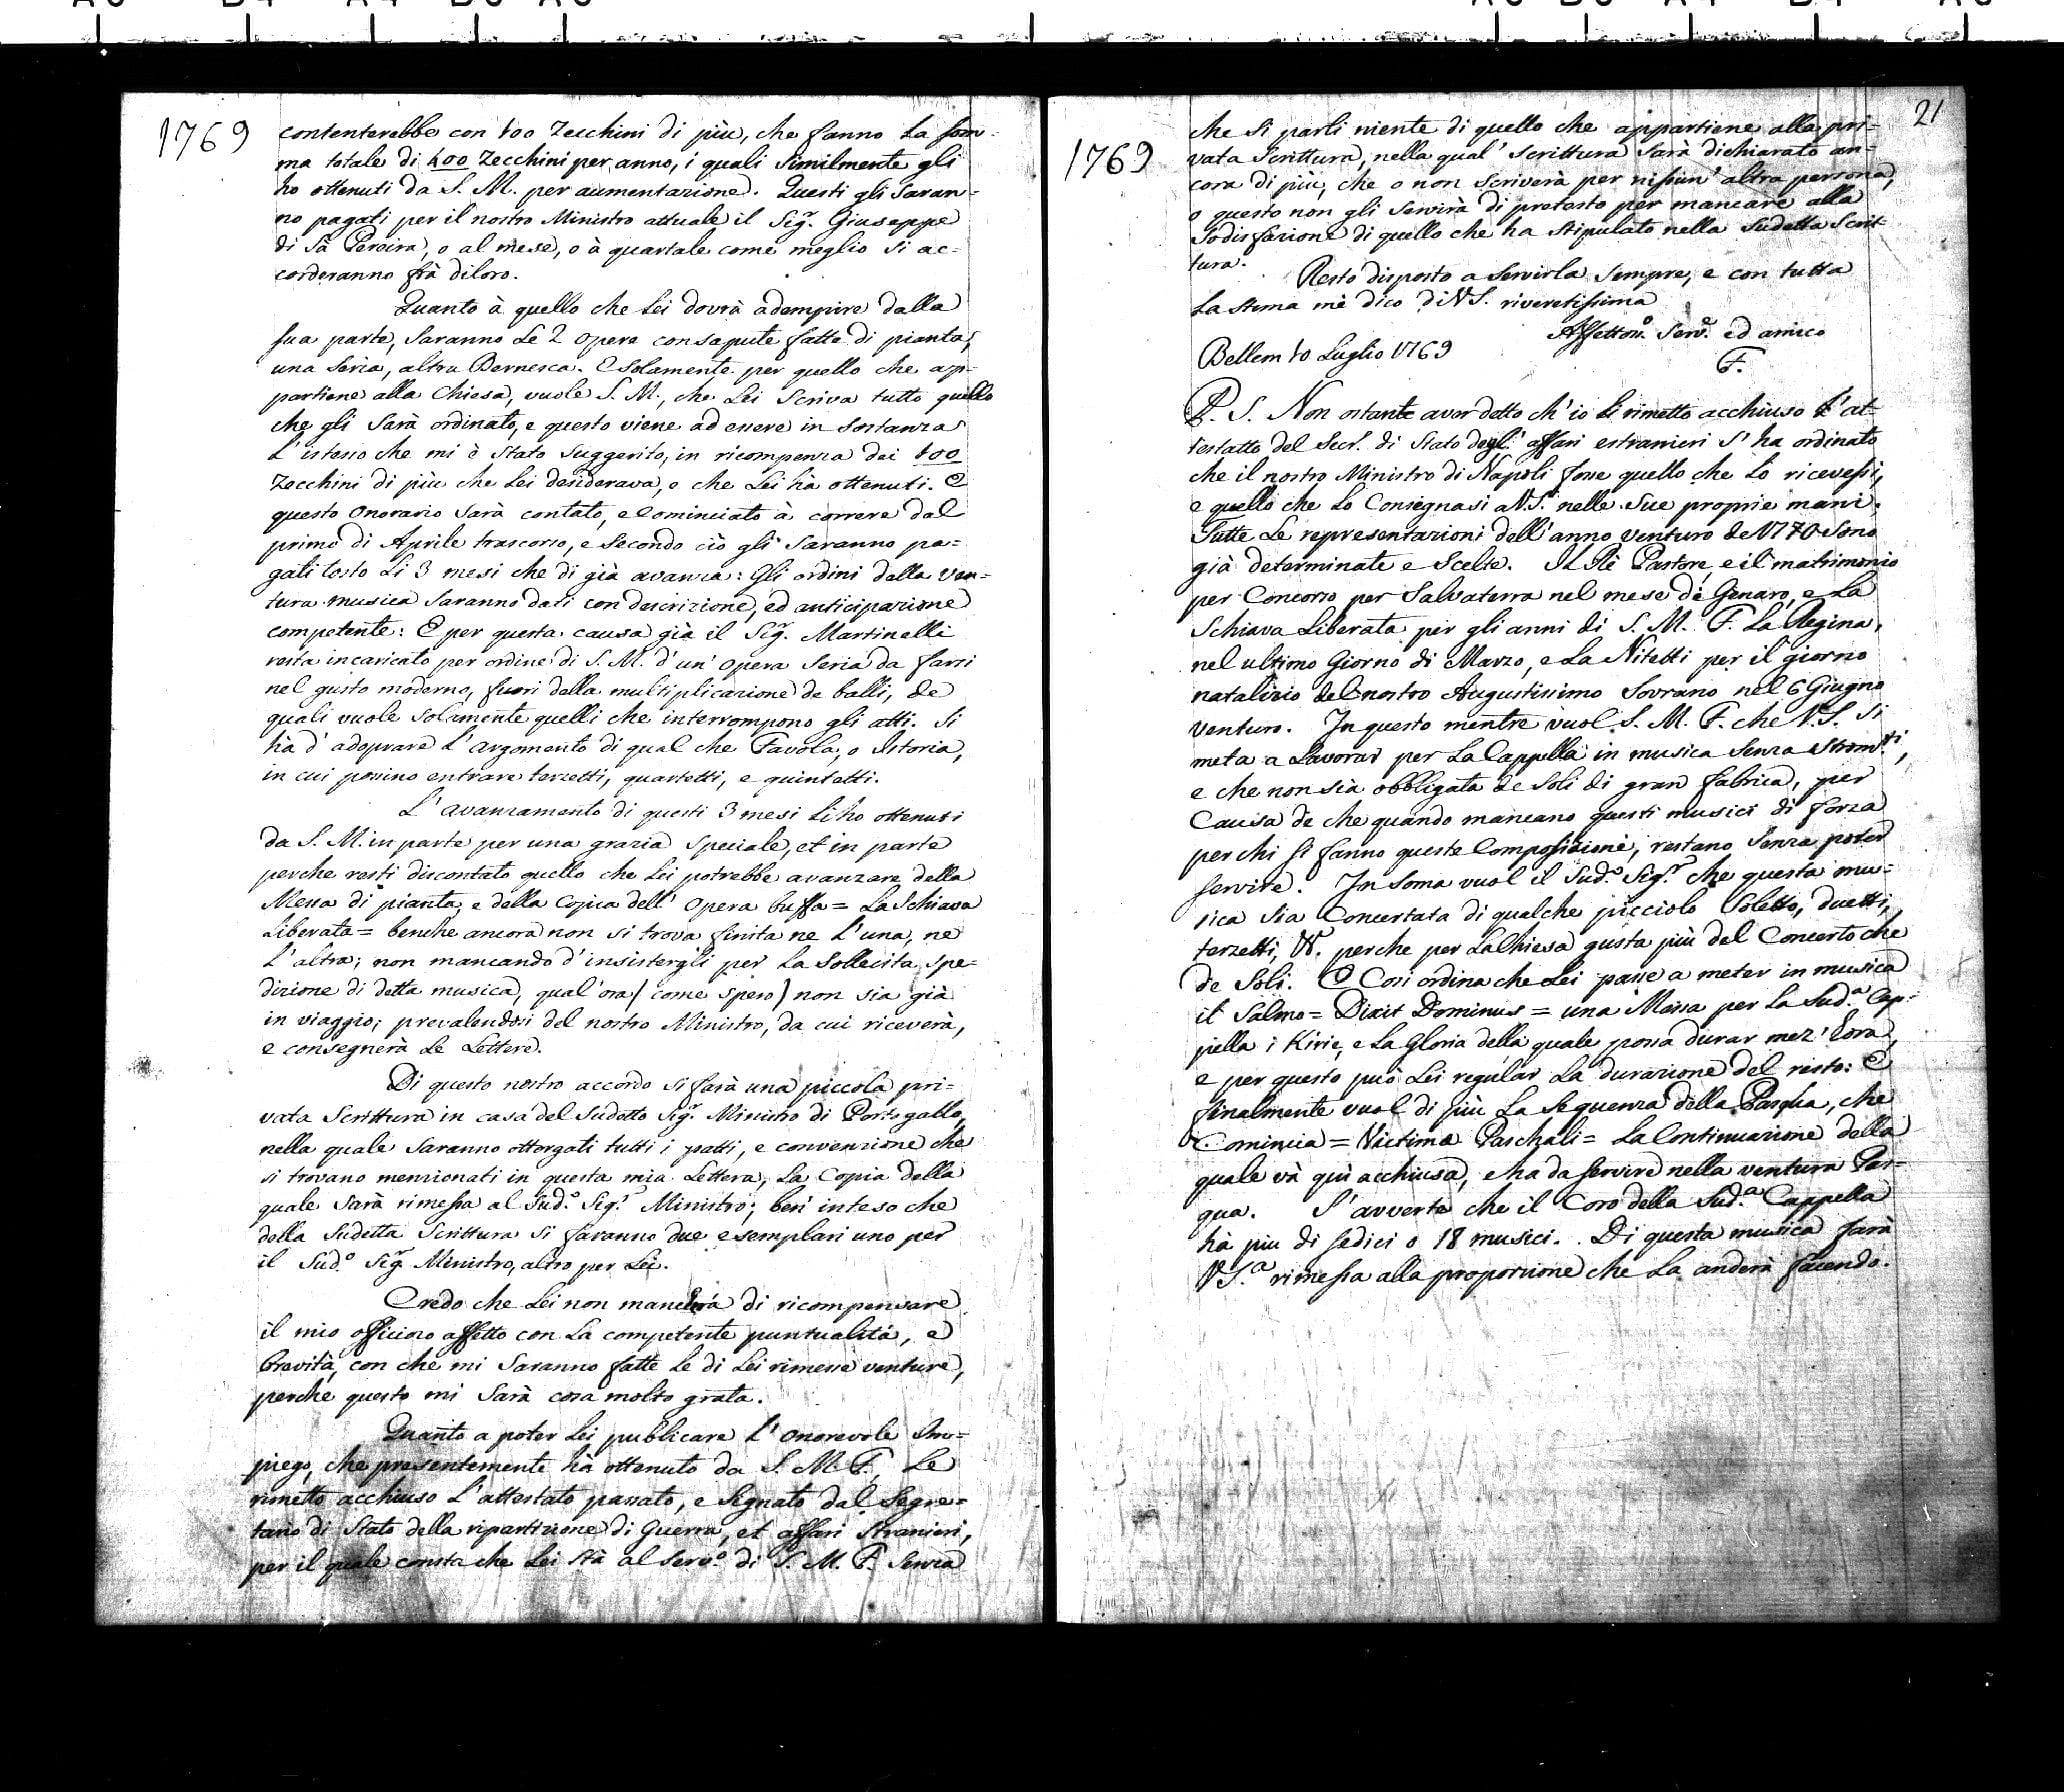 A3 B4 A4 B5 A5
A5 B5 A4 B4 A3
1769
contenterebbe con 100 Zecchini di più, che fanno la som-
ma totale di 400 Zecchini per anno, i quali similmente gli
ho ottenuti da S. M. per aumentazione. Questi gli saran-
no pagati per il nostro Ministro attuale il Sigr. Giuseppe
di Sà Pereira, o al mese, o à quartale come meglio si ac-
corderanno frà diloro.
Quanto à quello che Lei dovrà adempire dalla
sua parte, saranno Le 2 opere consapute fatte di pianta,
una seria, altra Bernesca. E solamente per quello che ap-
partiene alla Chiesa, vuole S. M., che Lei scriva tutto quello
che gli sarà ordinato, e questo viene ad essere in sostanza
L'istesso che mi è stato suggerito, in ricompenza dei 100
Zecchini di più che Lei desiderava, e che Lei hà ottenuti. E
questo onorario sarà contato, e Cominciato à correre dal
primo di Aprile trascorso, e secondo ciò gli saranno pa=
gati tosto Li 3 mesi che di già avanza: Gli ordini della ven=
tura musica saranno dati con descrizione, ed anticipazione
competente: E per questa causa già il Sigr. Martinelli
resta incaricato per ordine di S. M. d'un' opera seria da farsi
nel gusto moderno, fuori della multiplicazione de balli, de
quali vuole solamente quelli che interrompono gli atti. Si
hà d' adoprare L'argomento di qual che Favola, o Istoria,
in cui possino entrare terzetti, quartetti, e quintetti.
L'avanzamento di questi 3 mesi Li ho ottenuti
da S. M. in parte per una grazia speciale, et in parte
perche resti discontato quello che Lei potrebbe avanzare della
Messa di pianta, e della Copia dell' opera buffa = La Schiava
Liberata = benche ancora non si trova finita ne L'una, ne
L'altra; non mancando d'insistergli per La sollecita spe=
dizione di detta musica, qual'ora (come spero) non sia già
in viaggio; prevalendosi del nostro Ministro, da cui riceverà,
e consegnerà Le Lettere.
Di questo nostro accordo si farà una piccola pri=
vata Scrittura in casa del sudetto Sigr. Ministro di Portogallo,
nella quale saranno ottorgati tutti i patti, e convenzione che
si trovano menzionati in questa mia Lettera, La Copia della
quale sarà rimessa al Sud.o Sigr. Ministro; ben inteso che
della sudetta Scrittura si faranno due esemplari uno per
il Sud.o Sigr. Ministro, altro per Lei.
Credo che Lei non mancherà di ricompensare
il mio officioso affetto con La competente puntualità, e
brevità, con che mi saranno fatte Le di Lei rimesse venture,
perche questo mi sarà cosa molto grata.
Quanto a poter Lei publicare L'onorevole Im=
piego, che presentemente hà ottenuto da S. M. F., Le
rimetto acchiuso L'attestato passato, e segnato dal Segre=
tario di Stato della ripartizione di Guerra, et affari stranieri,
per il quale consta che Lei stà al Serv.o di S. M. F. senza
21
1769
che si parli niente di quello che appartiene alla pri=
vata Scrittura, nella qual' Scrittura sarà dichiarato an=
cora di più, che o non scriverà per nissun' altra persona,
o questo non gli servirà di pretesto per mancare alla
sodisfazione di quello che ha stipulato nella sudetta Scrit-
tura. Resto disposto a servirla sempre, e con tutta
La stima mè dico di VS. riveretissima
Affetton.o Serv.e ed amico
Bellem 10 Luglio 1769
F.
P. S. Non ostante aver detto ch'io Li rimetto acchiuso L'at-
testatto del Secr. di Stato degl' affari estranieri s' ha ordinato
che il nostro Ministro di Napoli fosse quello che Lo ricevessi,
e quello che Lo Consegnasi a V.S. nelle sue proprie mani.
Tutte Le representazioni dell' anno venturo de 1770 sono
già determinate e scelte. Il Rè Pastore, e il matrimonio
per Concorso per Salvaterra nel mese dé Genaro, e La
Schiava Liberata per gli anni di S. M. F. La Regina,
nel ultimo Giorno di Marzo, e La Nitetti per il giorno
natalizio del nostro Augustissimo Sovrano nel 6 Giugno
venturo. In questo mentre vuol S. M. F. che V.S. si
meta a Lavorar per La Cappella in musica senza Strom.ti,
e che non sia obbligata de Soli di gran fabrica, per
Causa de che quando mancano questi musici di forza
per chi si fanno queste Composizione, restano senza poter
servire. In soma vuol il Sud.o Sigr. che questa mu=
sica sia Concertata di qualche picciolo Soletto, duetti,
terzetti, &. perche per La Chiesa gusta più del Concerto che
de Soli. E Cosi ordina che Lei passe a meter in musica
il Salmo = Dixit Dominus = una Messa per La Sud.a Cap=
pella i Kirie, e La Gloria della quale possa durar mez' Lora,
e per questo può Lei regular La durazione del resto: E
finalmente vuol di più La Sequenza della Pasqua, che
Comincia = Victimæ Paschali = La Continuazione della
quale và qui acchiusa, e ha da servire nella ventura Pas=
qua. S'averte che il Coro della Sud.a Cappella
hà piu di sedici o 18 musici. Di questa musica farà
VS.a rimessa alla proporzione che La anderà facendo.